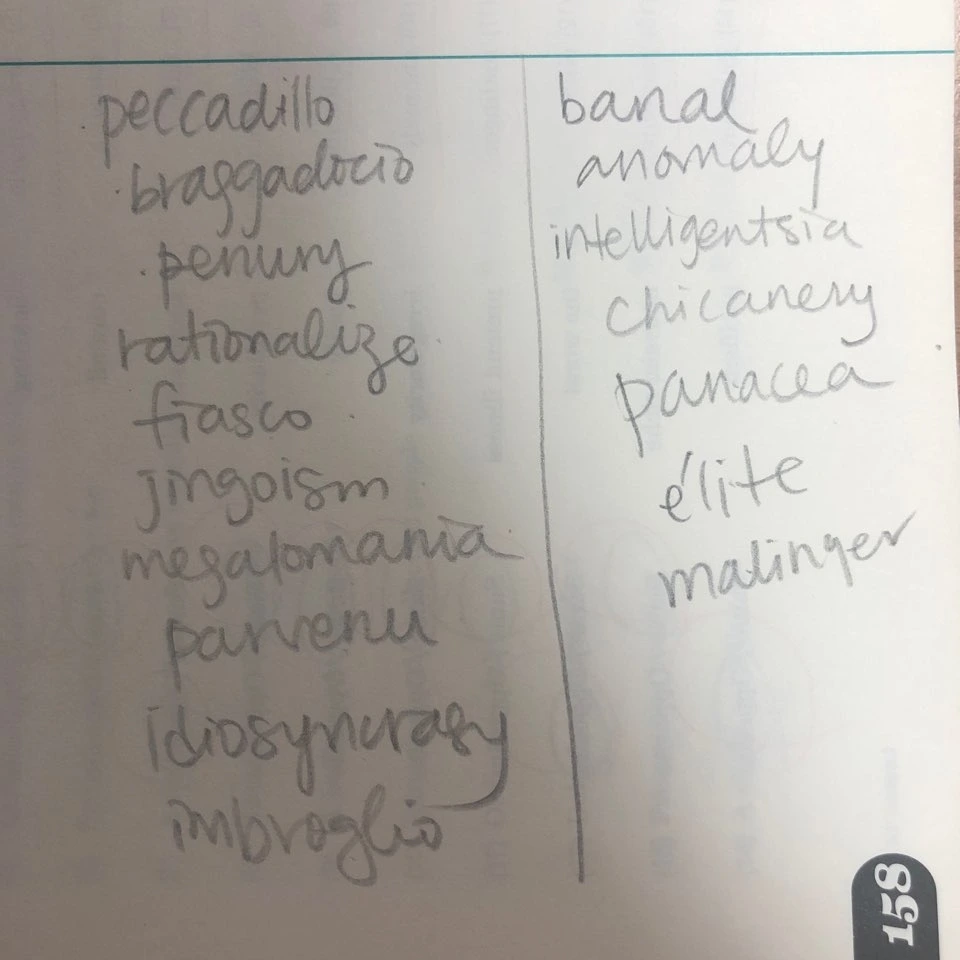 peccadillo
braggadocio
penury
rationalize
fiasco
jingoism
megalomania
parvenu
idiosyncrasy
imbroglio
banal
anomaly
intelligentsia
chicanery
panacea
élite
malinger
158